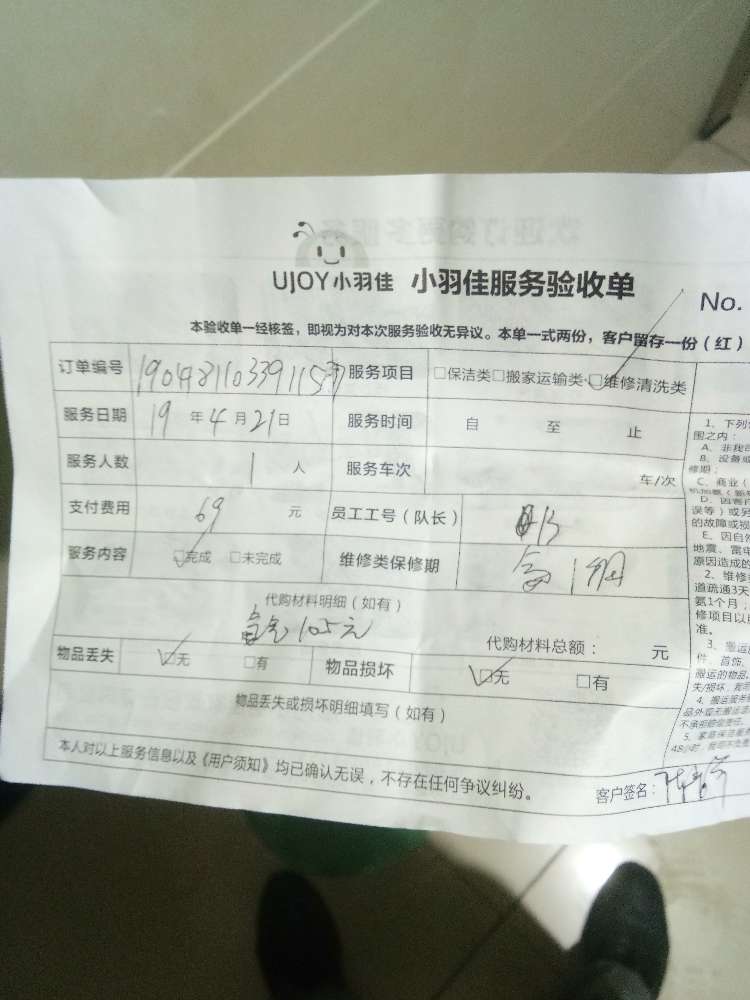 UJOY小羽佳 小羽佳服务验收单
No.
本验收单一经核签，即视为对本次服务验收无异议。本单一式两份，客户留存一份（红）
订单编号 服务项目 □保洁类□搬家运输类·□维修清洗类
服务日期 19 年 4 月 21 日 服务时间 自 至 止
服务人数 1 人 服务车次 车/次
支付费用 69 元 员工工号（队长）
服务内容 □完成 □未完成 维修类保修期
代购材料明细（如有）
105元
代购材料总额： 元
物品丢失 □无 □有 物品损坏 □无 □有
物品丢失或损坏明细填写（如有）
本人对以上服务信息以及《用户须知》均已确认无误，不存在任何争议纠纷。
客户签名：
1、下列
围之内：
A、非我
B、设备或
修期；
C、商业（
误等）或另
的故障或损
E、因自然
地震、雷电
原因造成的
2、维修
道疏通3天
氨1个月，
修项目以
准。
3、搬运
件、首饰、
搬运的物品
失/损坏，
4、搬运服务
不承担赔偿责任。
5、家庭保洁服务
48小时，